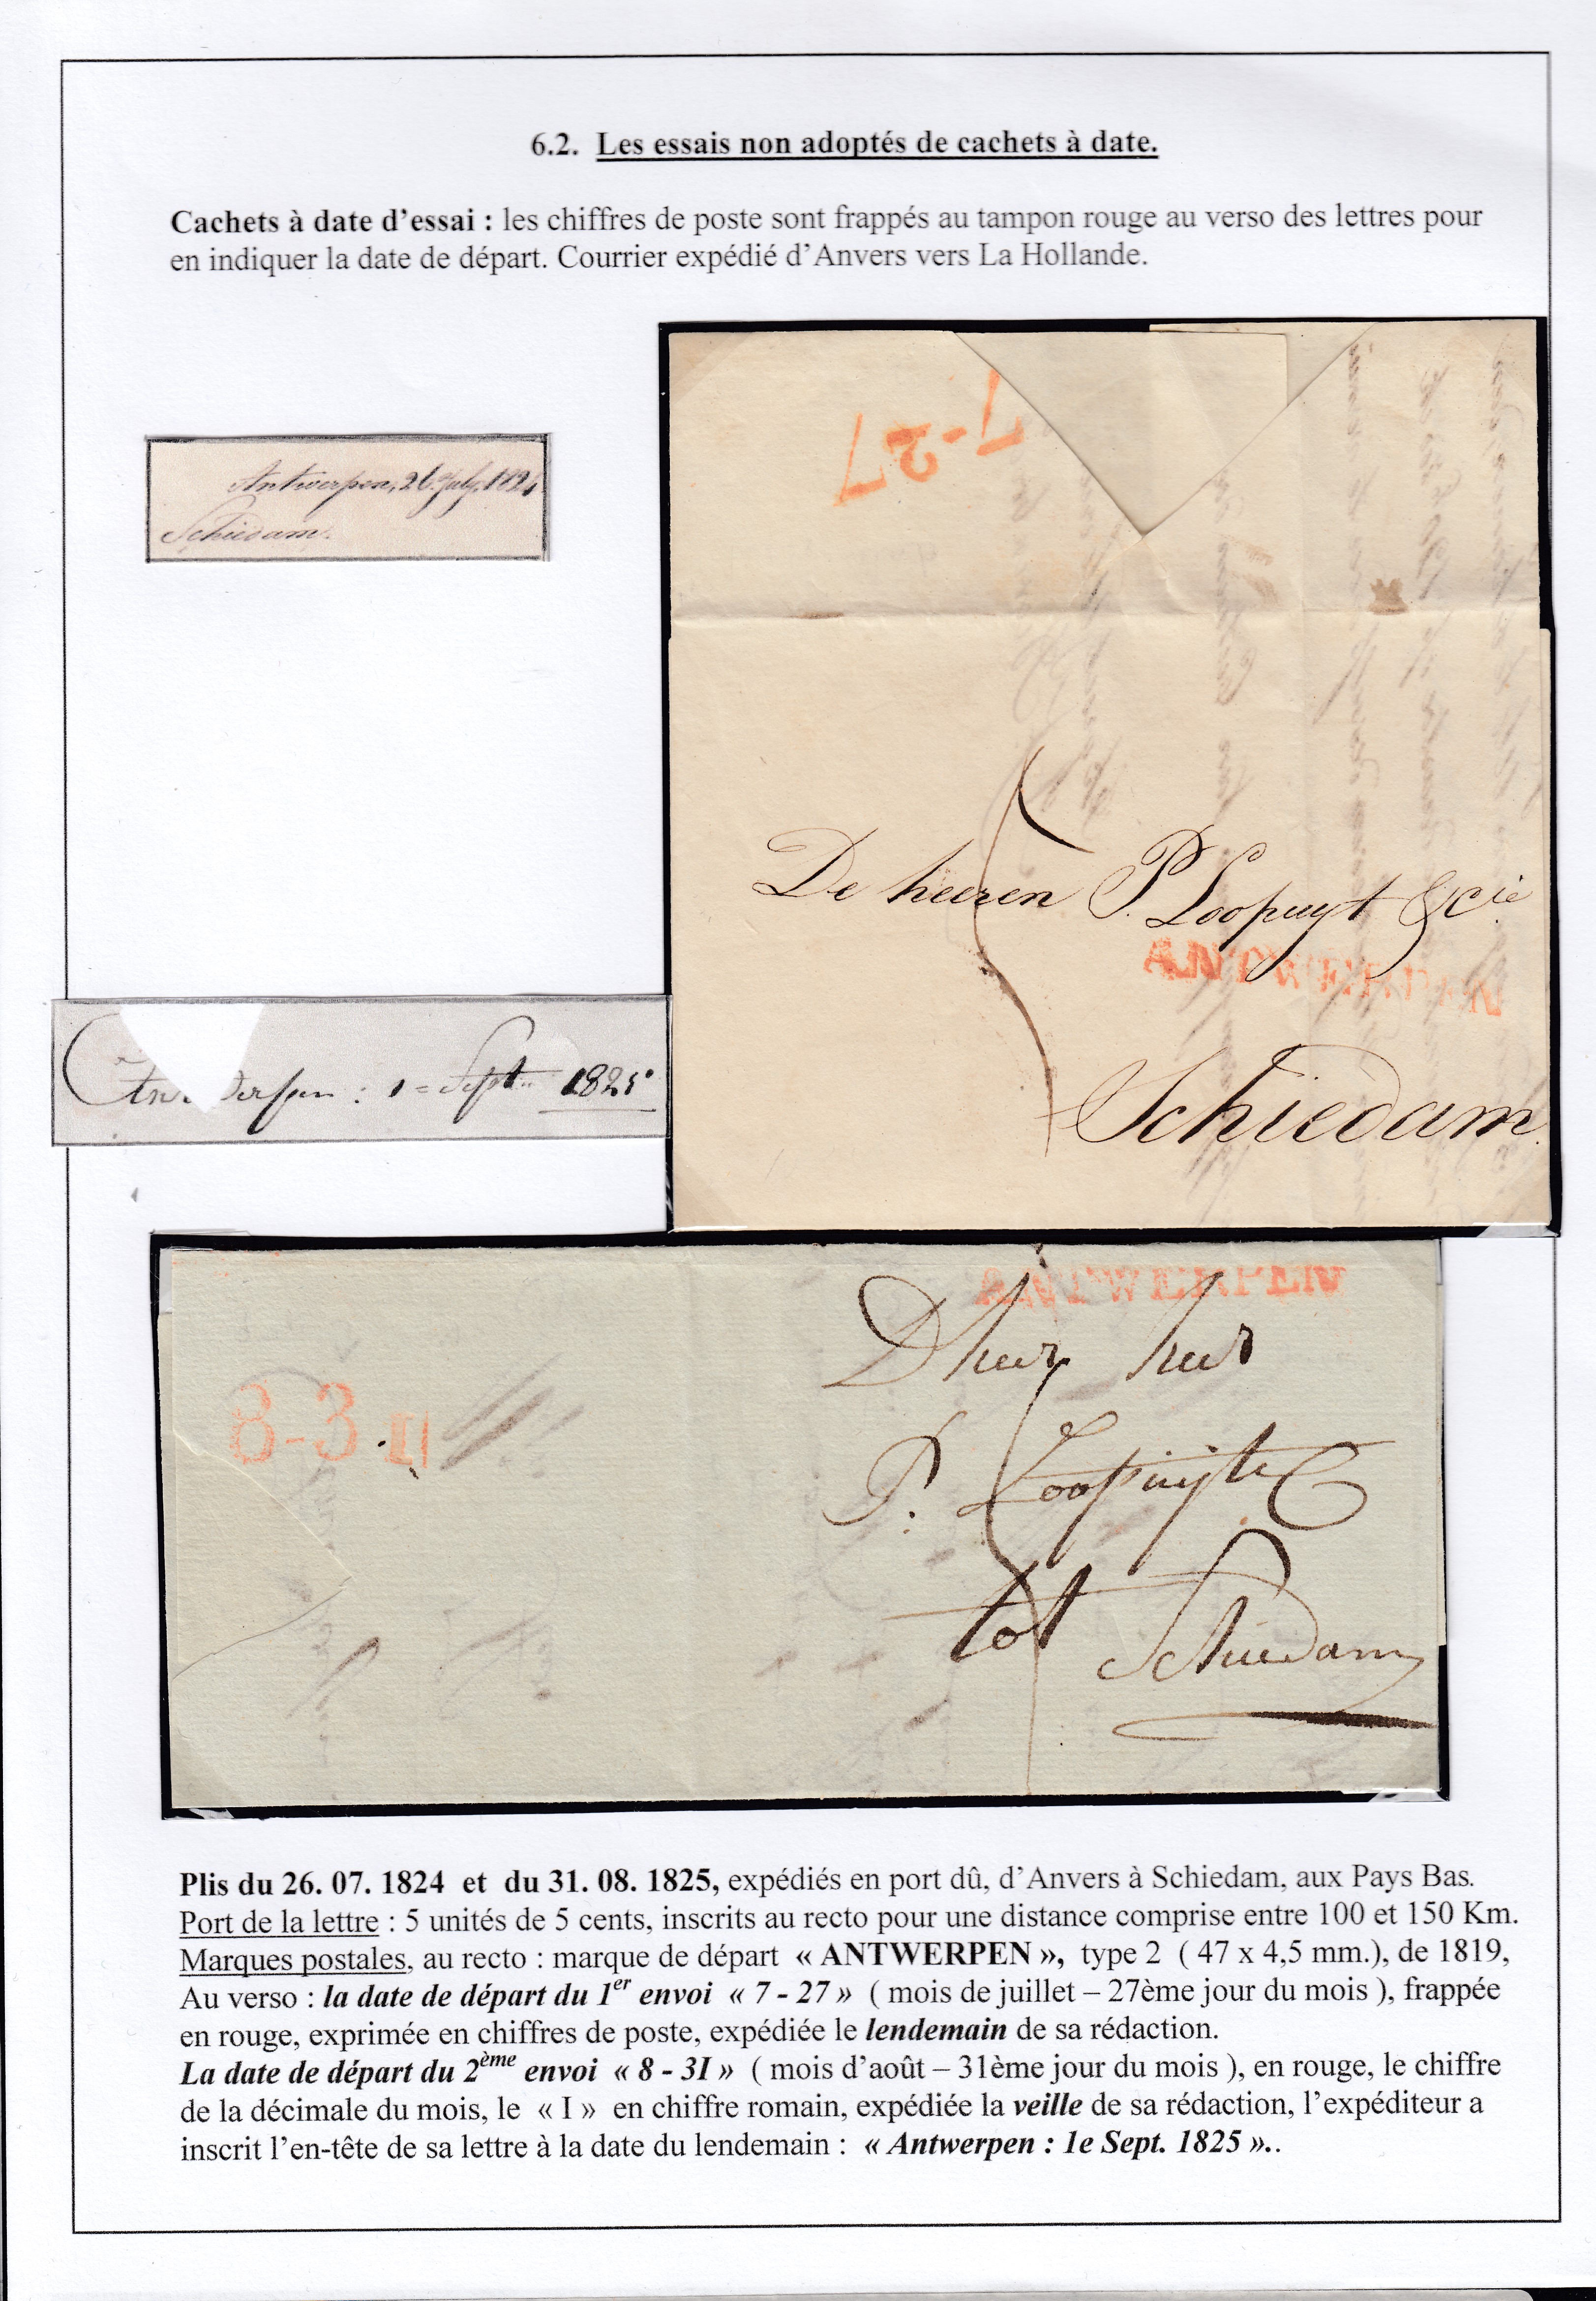 6.2. Les essais non adoptés de cachets à date.
Cachets à date d'essai : les chiffres de poste sont frappés au tampon rouge au verso des lettres pour
en indiquer la date de départ. Courrier expédié d'Anvers vers La Hollande.
7-27
Antwerpen, 26 July, 1824
Schiedam.
De heeren P. Loopuyt & cie
ANTWERPEN
Schiedam
Antwerpen : 1 = Sept. 1825
ANTWERPEN
8-3I
P. Loopuyt
tot
Schiedam
Plis du 26. 07. 1824 et du 31. 08. 1825, expédiés en port dû, d'Anvers à Schiedam, aux Pays Bas.
Port de la lettre : 5 unités de 5 cents, inscrits au recto pour une distance comprise entre 100 et 150 Km.
Marques postales, au recto : marque de départ « ANTWERPEN », type 2 ( 47 x 4,5 mm.), de 1819,
Au verso : la date de départ du 1er envoi « 7 - 27 » ( mois de juillet – 27ème jour du mois ), frappée
en rouge, exprimée en chiffres de poste, expédiée le lendemain de sa rédaction.
La date de départ du 2ème envoi « 8 - 3I » ( mois d'août – 31ème jour du mois ), en rouge, le chiffre
de la décimale du mois, le « I » en chiffre romain, expédiée la veille de sa rédaction, l'expéditeur a
inscrit l'en-tête de sa lettre à la date du lendemain : « Antwerpen : 1e Sept. 1825 »..